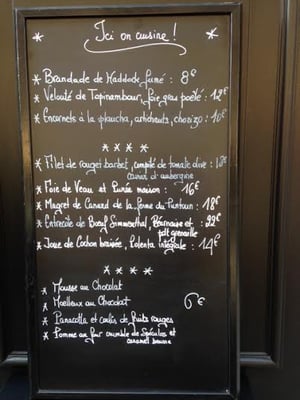 * Ici on cuisine ! *
* Brandade de Haddock fumé : 8€
* Velouté de Topinambour, foie gras poêlé : 12€
* Encornets à la plancha, artichauts, chorizo : 10€
* * * *
* Filet de rouget barbet, compoté de tomate olive :
caviar d'aubergine
* Foie de Veau et Purée maison : 16€
* Magret de Canard de la ferme du Puntoun : 18€
* Entrecote de Boeuf Simmenthal, Béarnaise et : 22€
pdt grenaille
* Joue de Cochon braisée, Polenta intégrale : 14€
* * * *
* Mousse au Chocolat
* Moelleux au Chocolat 6€
* Panacotta et coulis de fruits rouges
* Pomme au four crumble de Spéculos et
caramel beurre